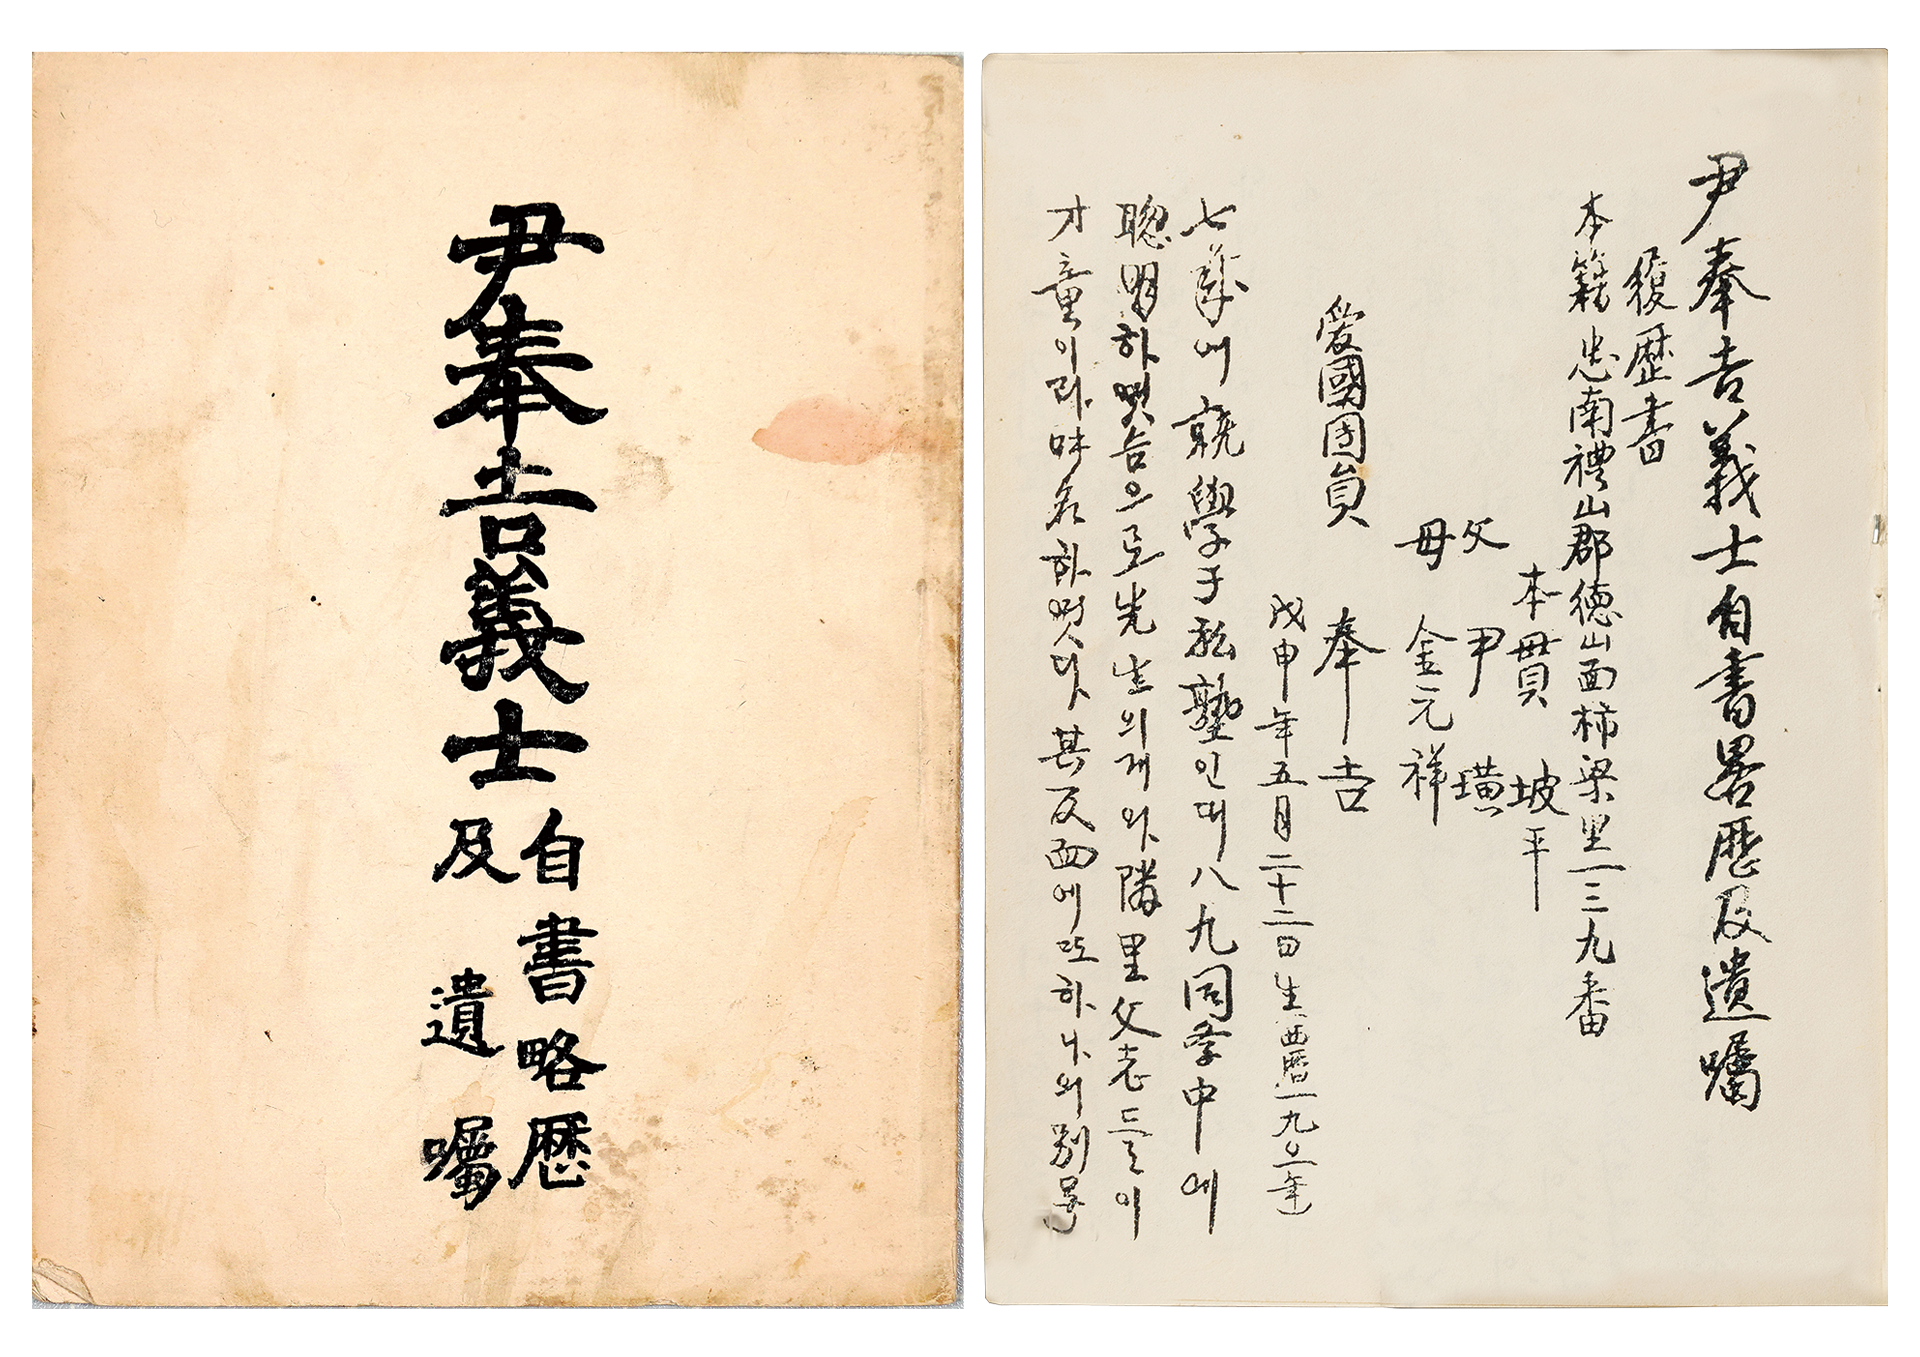 尹奉吉義士
自書略歷
及遺囑
尹奉吉義士自書畧歷及遺囑
履歷書
本籍忠南禮山郡德山面柿梁里一三九番
本貫 坡平
父 尹璜
母 金元祥
愛國団員 奉吉
戊申年五月二十二日生 西曆一九〇年
七歲에 就學于私塾인대 八九同学中에
聰明하엿슴으로 先生의게와 隣里父老들이
才童이라 하엿다 其反面에 또 하나의 別号